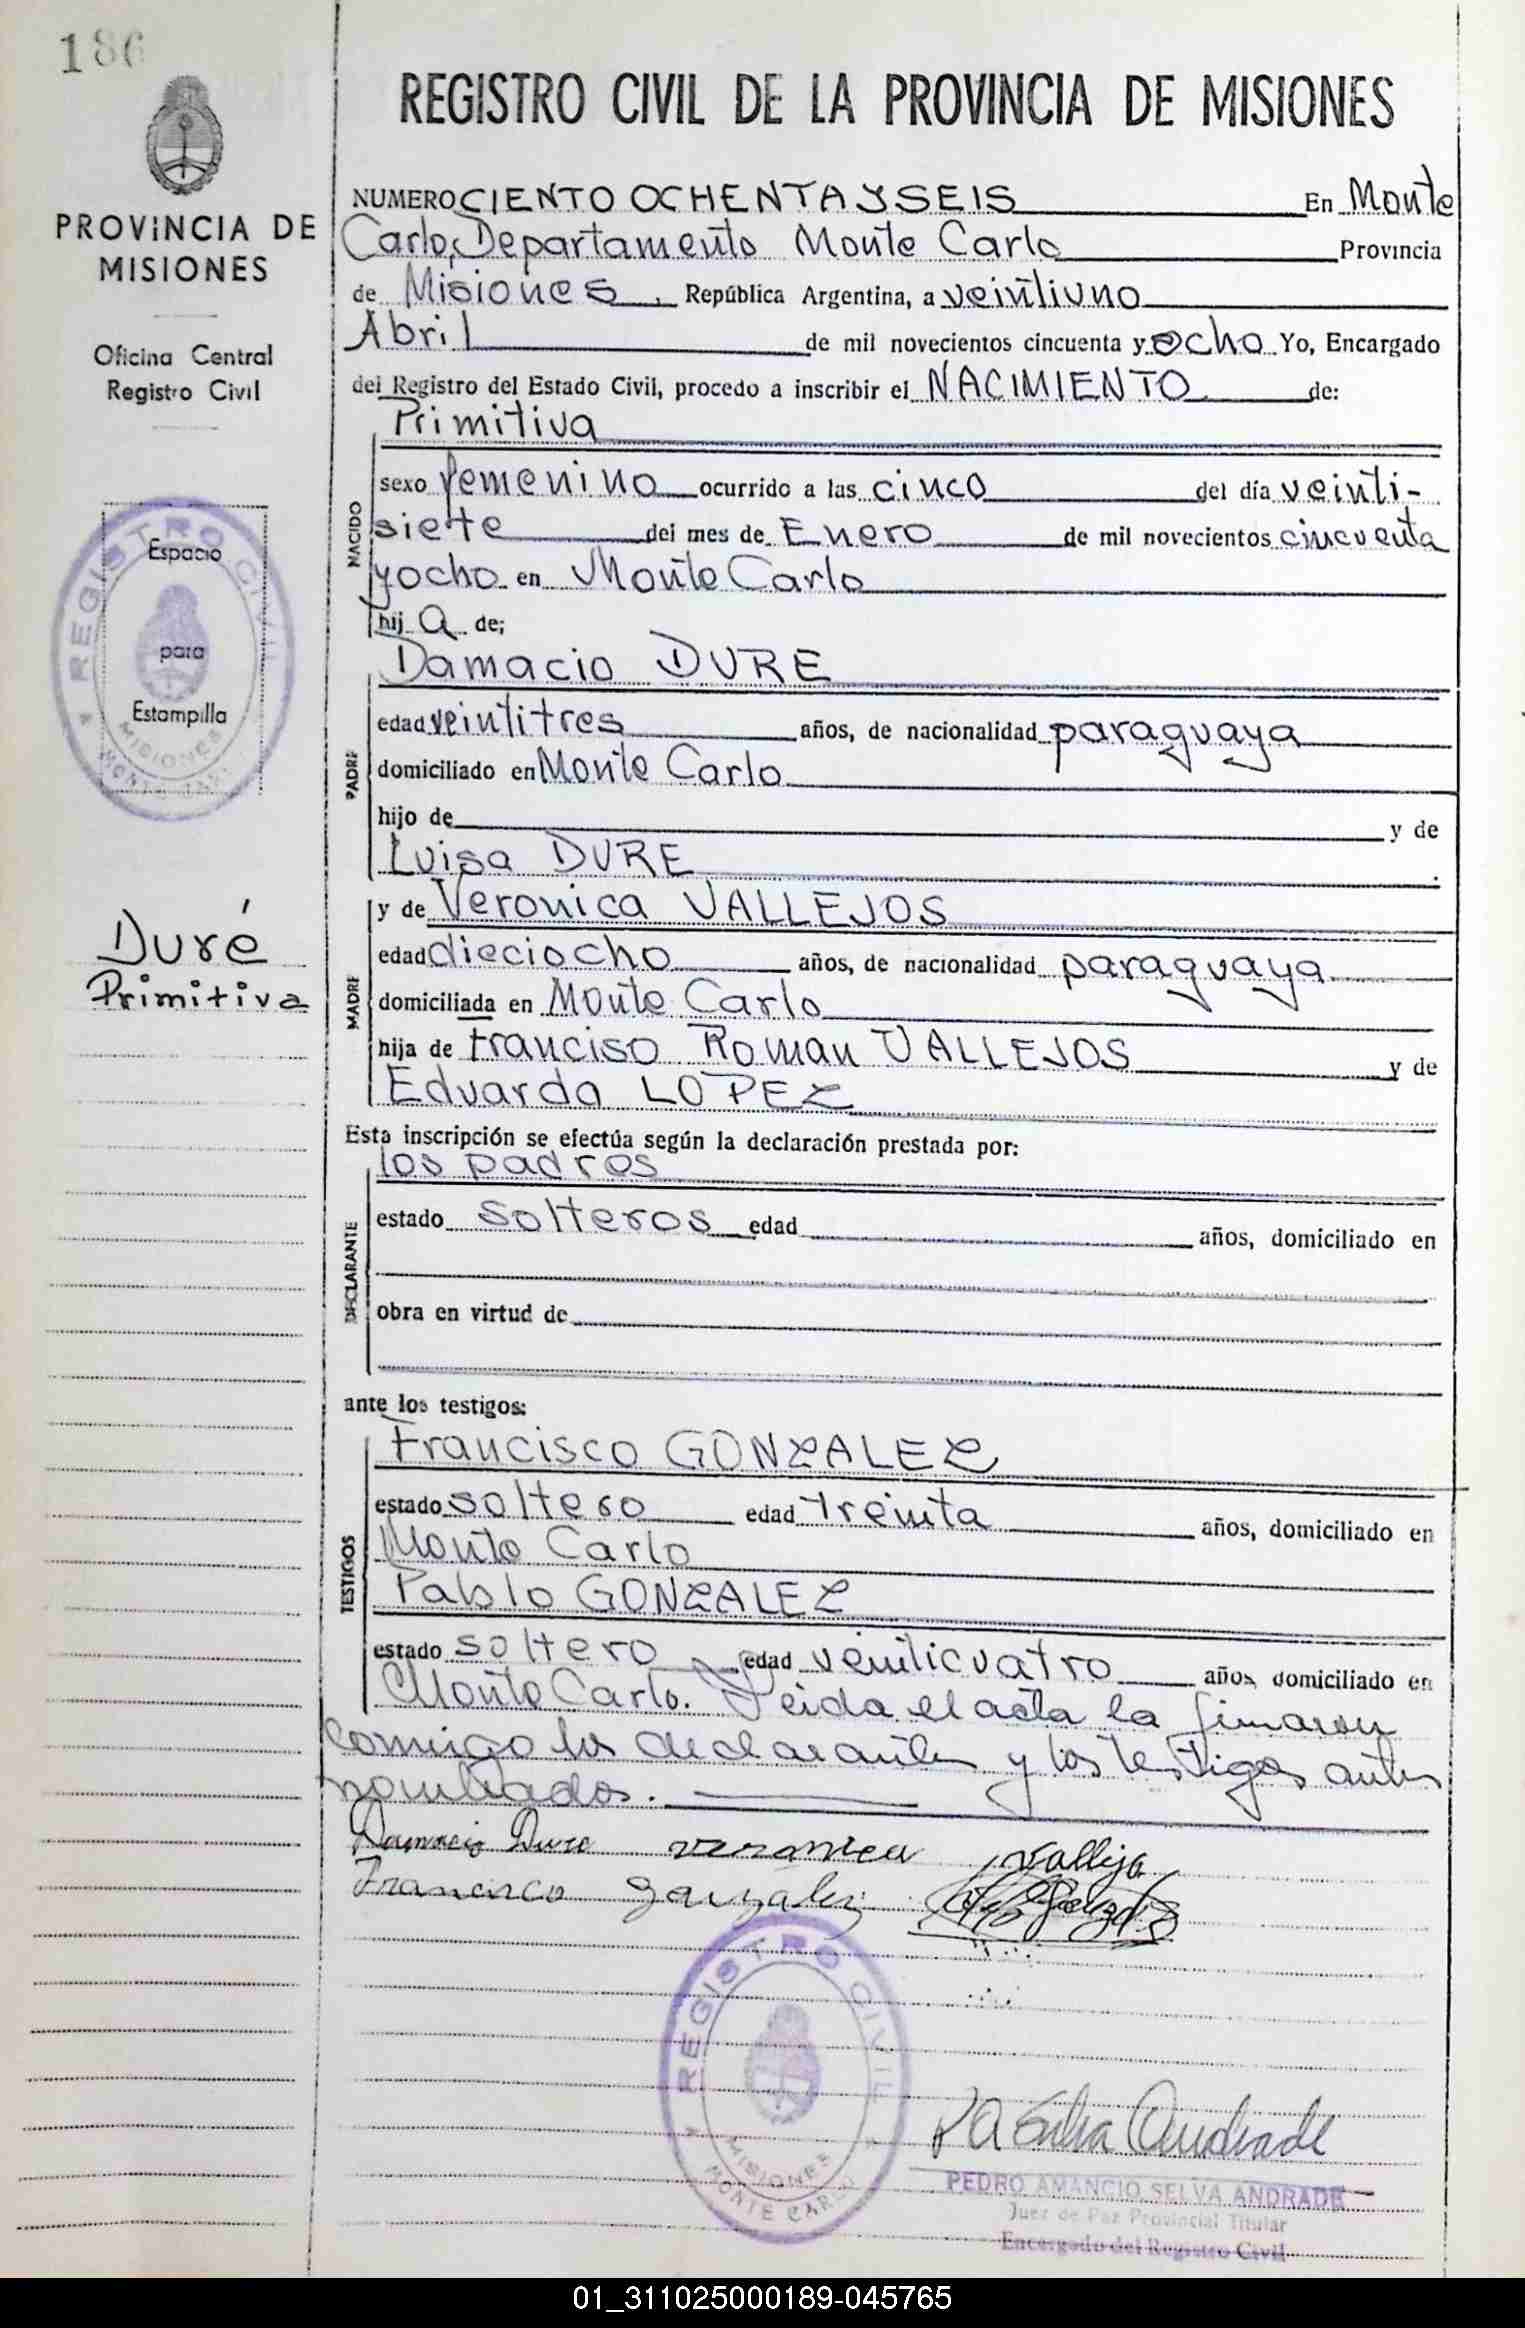 186
PROVINCIA DE
MISIONES
Oficina Central
Registro Civil
REGISTRO CIVIL
Espacio
para
Estampilla
MISIONES
MONTE CARLO
Duré
Primitiva
REGISTRO CIVIL DE LA PROVINCIA DE MISIONES
NUMERO CIENTO OCHENTA Y SEIS En Monte
Carlo, Departamento Monte Carlo Provincia
de Misiones, República Argentina, a veintiuno
Abril de mil novecientos cincuenta y ocho Yo, Encargado
del Registro del Estado Civil, procedo a inscribir el NACIMIENTO de:
NACIDO
Primitiva
sexo femenino ocurrido a las cinco del día veinti-
siete del mes de Enero de mil novecientos cincuenta
y ocho en Monte Carlo
hij a de;
PADRE
Damacio DURE
edad veintitres años, de nacionalidad paraguaya
domiciliado en Monte Carlo
hijo de y de
Luisa DURE
MADRE
y de Veronica VALLEJOS
edad dieciocho años, de nacionalidad paraguaya
domiciliada en Monte Carlo
hija de Franciso Roman VALLEJOS y de
Eduarda LOPEZ
Esta inscripción se efectúa según la declaración prestada por:
DECLARANTE
los padres
estado solteros edad años, domiciliado en
obra en virtud de
ante los testigos:
TESTIGOS
Francisco GONZALEZ
estado soltero edad treinta años, domiciliado en
Monte Carlo
Pablo GONZALEZ
estado soltero edad veinticuatro años, domiciliado en
Monte Carlo. Leida el acta la firmaron
conmigo los declarantes y los testigos antes
nombrados.
Damacio Dure veronica Vallejo
Francisco Gonzalez Pablo Gonzalez
REGISTRO CIVIL
MISIONES
MONTE CARLO
P A Selva Andrade
PEDRO AMANCIO SELVA ANDRADE
Juez de Paz Provincial Titular
Encargado del Registro Civil
01_311025000189-045765